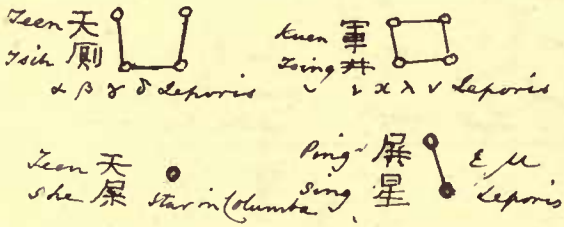 Teen 天
Tsih 厠
α β γ δ Leporis
Kuen 軍
Tsing 井
ι κ λ ν Leporis
Teen 天
She 屎 Star in Columba
Ping 屏 ε μ
Sing 星 Leporis